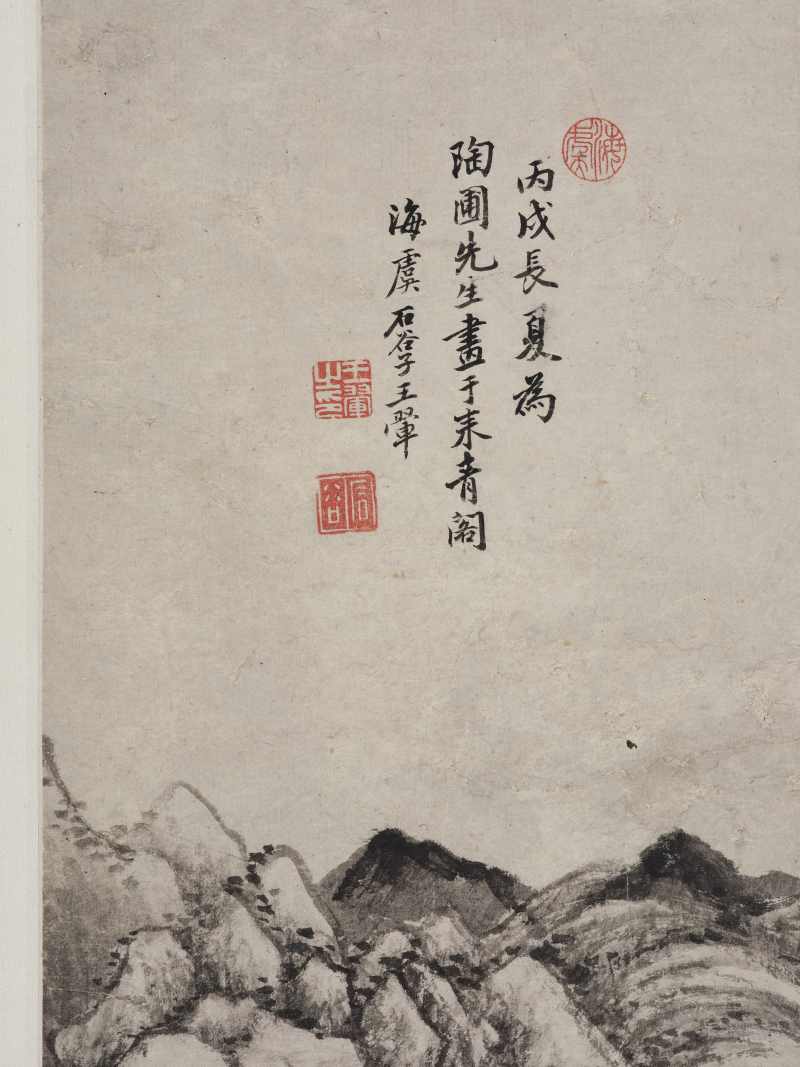 丙戌長夏為
陶圃先生畫于來青閣
海虞石谷子王翬
海虞
王翬之印
石谷